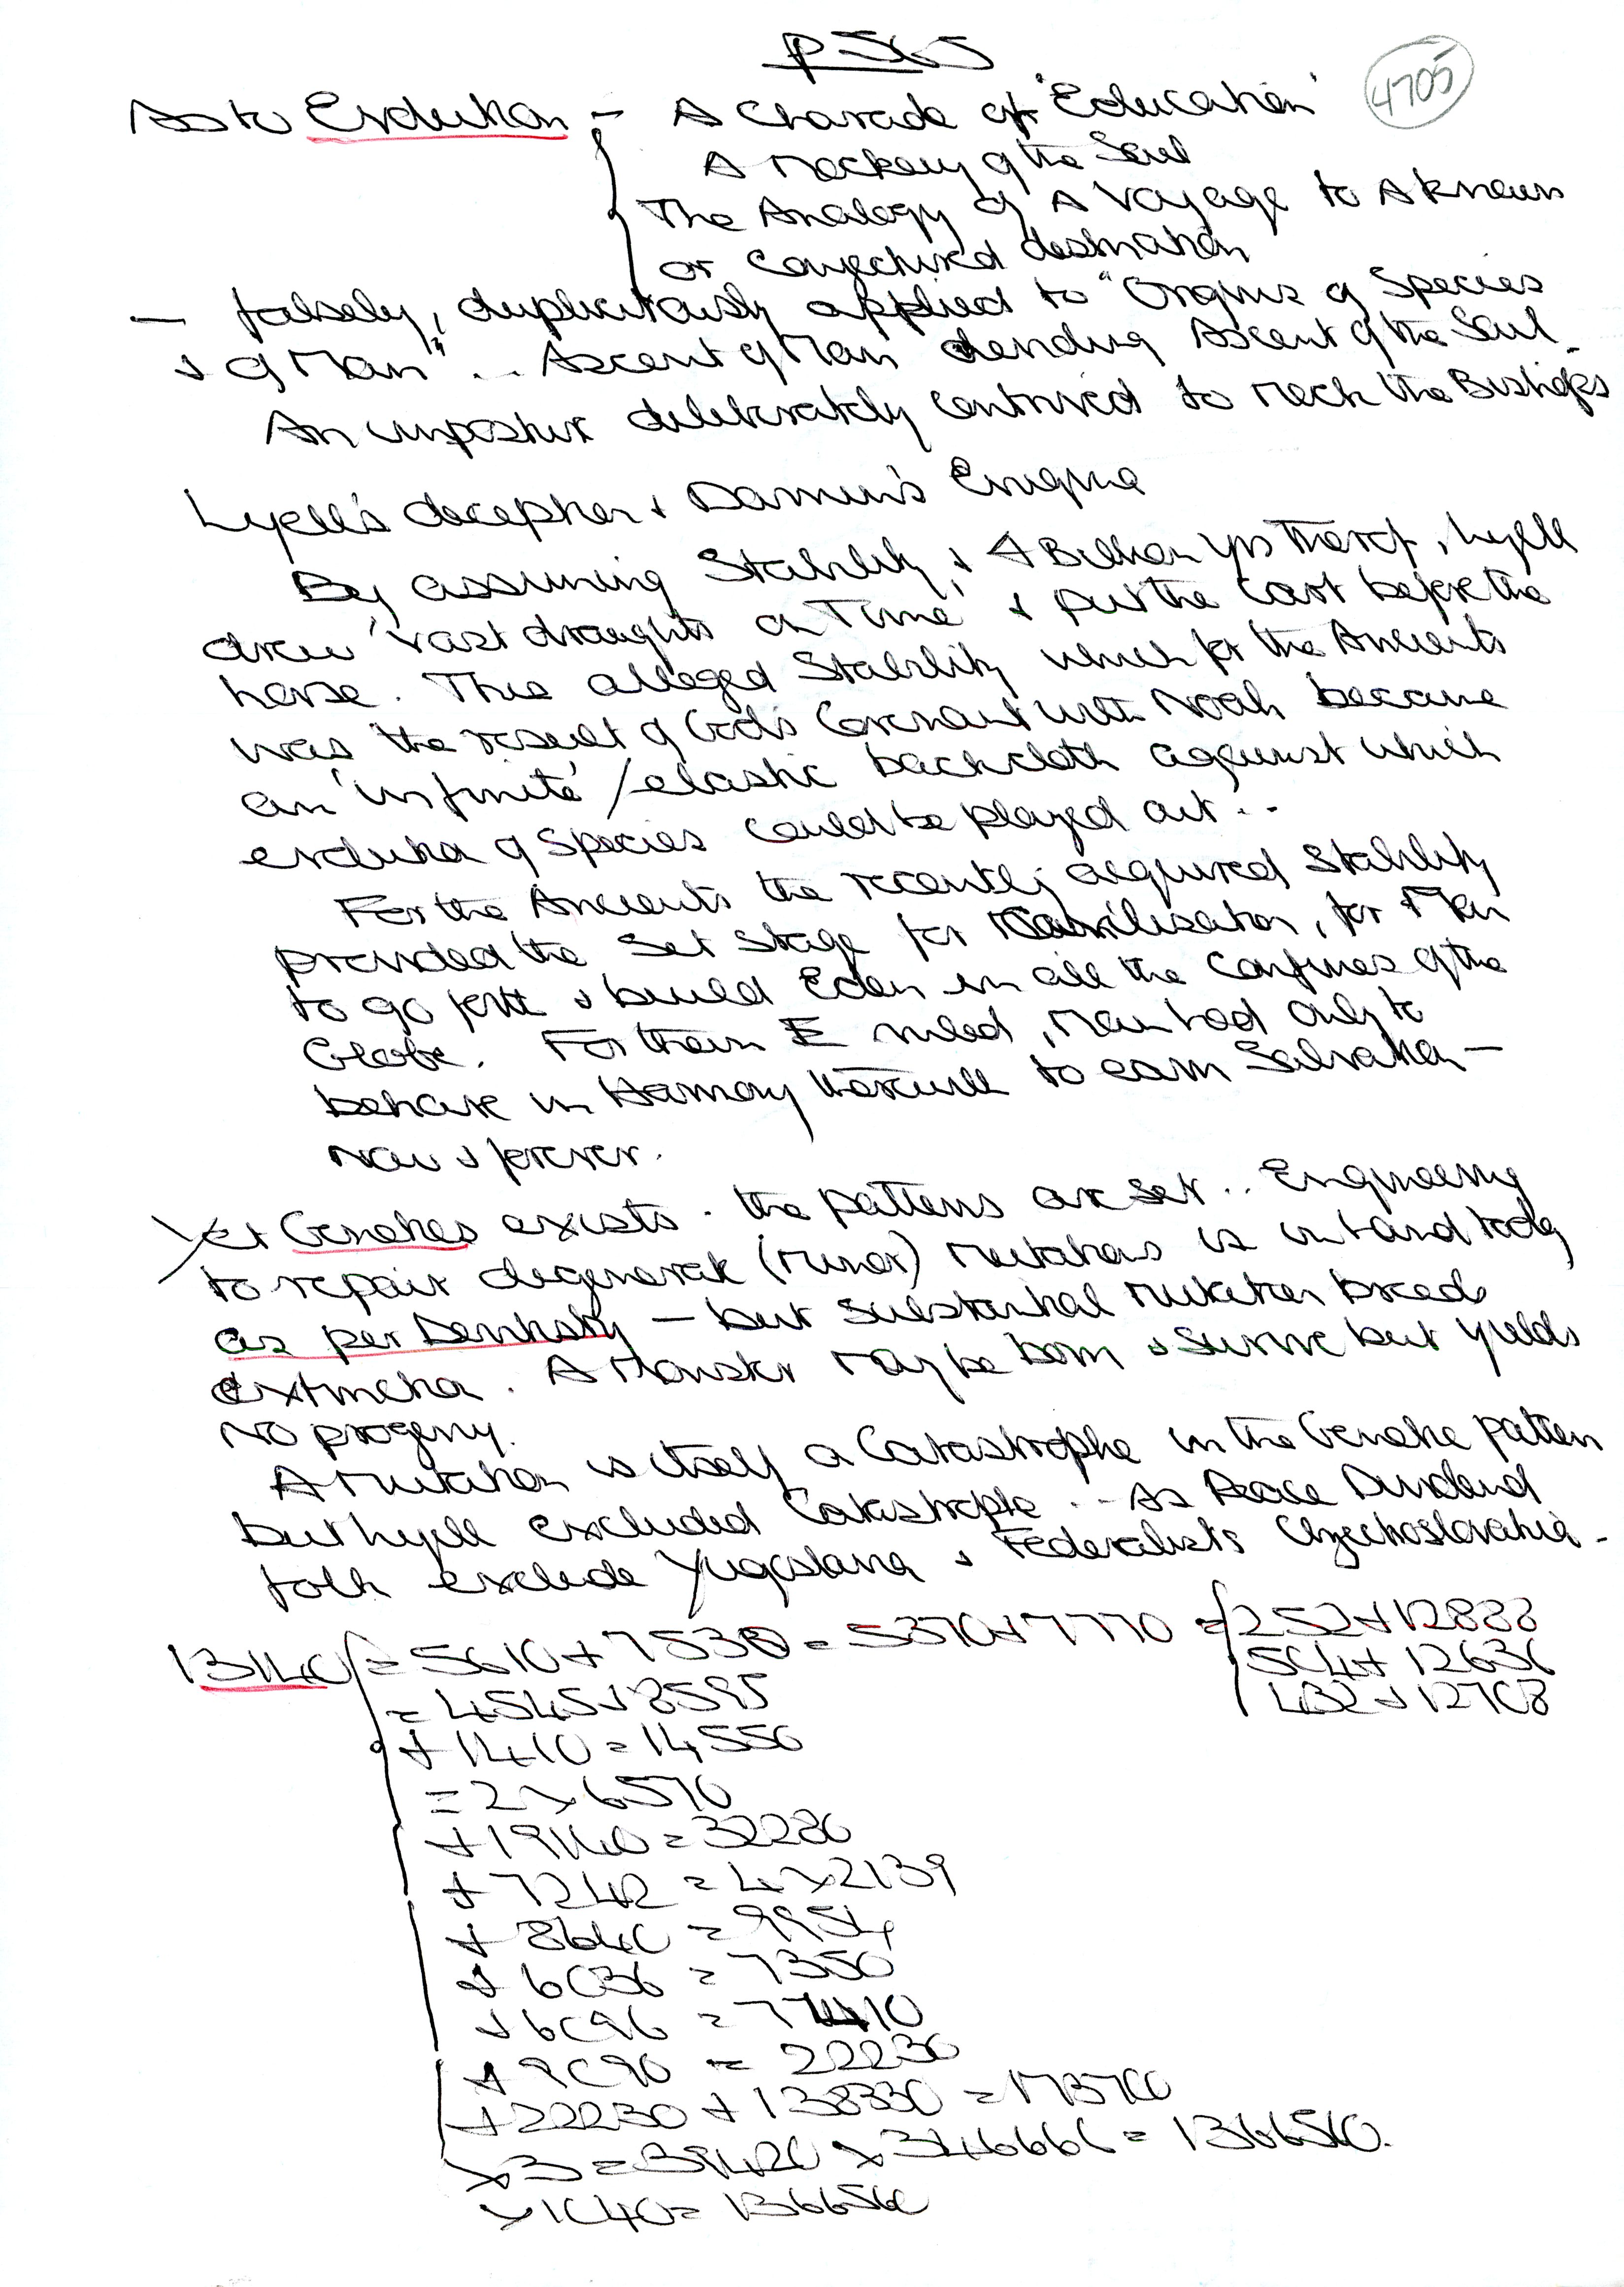 p 565
4705
As to Evolution – A Charade of "Education"
A Mockery of the Soul
The Analogy of A Voyage to A known
or conjectured destination
— falsely, duplicitously applied to "Origins of Species
& of Man" .. Ascent of Man deriding Ascent of the Soul.
An imposture deliberately contrived to mock the Bishops
Lyell's deception & Darwin's Enigma
By assuming Stability, & 4 Billion yrs thereof, Lyell
drew 'vast draughts on Time' & put the cart before the
horse. This alleged Stability which for the Ancients
was the result of God's Covenant with Noah became
an 'infinite' / elastic backcloth against which
evolution of Species could be played out ..
For the Ancients the recently acquired Stability
provided the set stage for Civilisation, for Man
to go forth & build Eden in all the Confines of the
Globe. For them E ruled, Man had only to
behave in Harmony therewith to earn Salvation —
now & forever.
Yet Genetics exists. the patterns are set .. Engineering
to repair degenerate (minor) mutations is in hand today
as per Dentistry – but substantial mutation breeds
extinction. A Monster may be born & survive but yields
no progeny.
A mutation is itself a Catastrophe in the Genetic pattern
but Lyell excluded Catastrophe .. As Peace Dividend
folk exclude Yugoslavia & Federalists Czechoslovakia.
13140 = 5610 + 7530 = 5370 + 7770 = 252 + 12888
504 + 12636
432 + 12708
= 4545 + 8595
+ 1410 = 14550
= 2 x 6570
+ 19140 = 32280
+ 7242 = 4 x 2139
+ 8640 = 9954
+ 6036 = 7350
+ 6096 = 77410
+ 9090 = 22230
+ 22230 + 138330 = 173700
x 3 = 39420 x 346666 = 1366560.
x 1040 = 136656